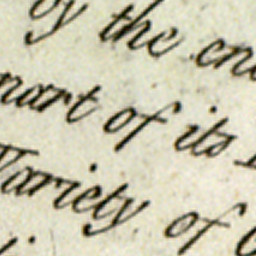 by the
part of its
Variety of